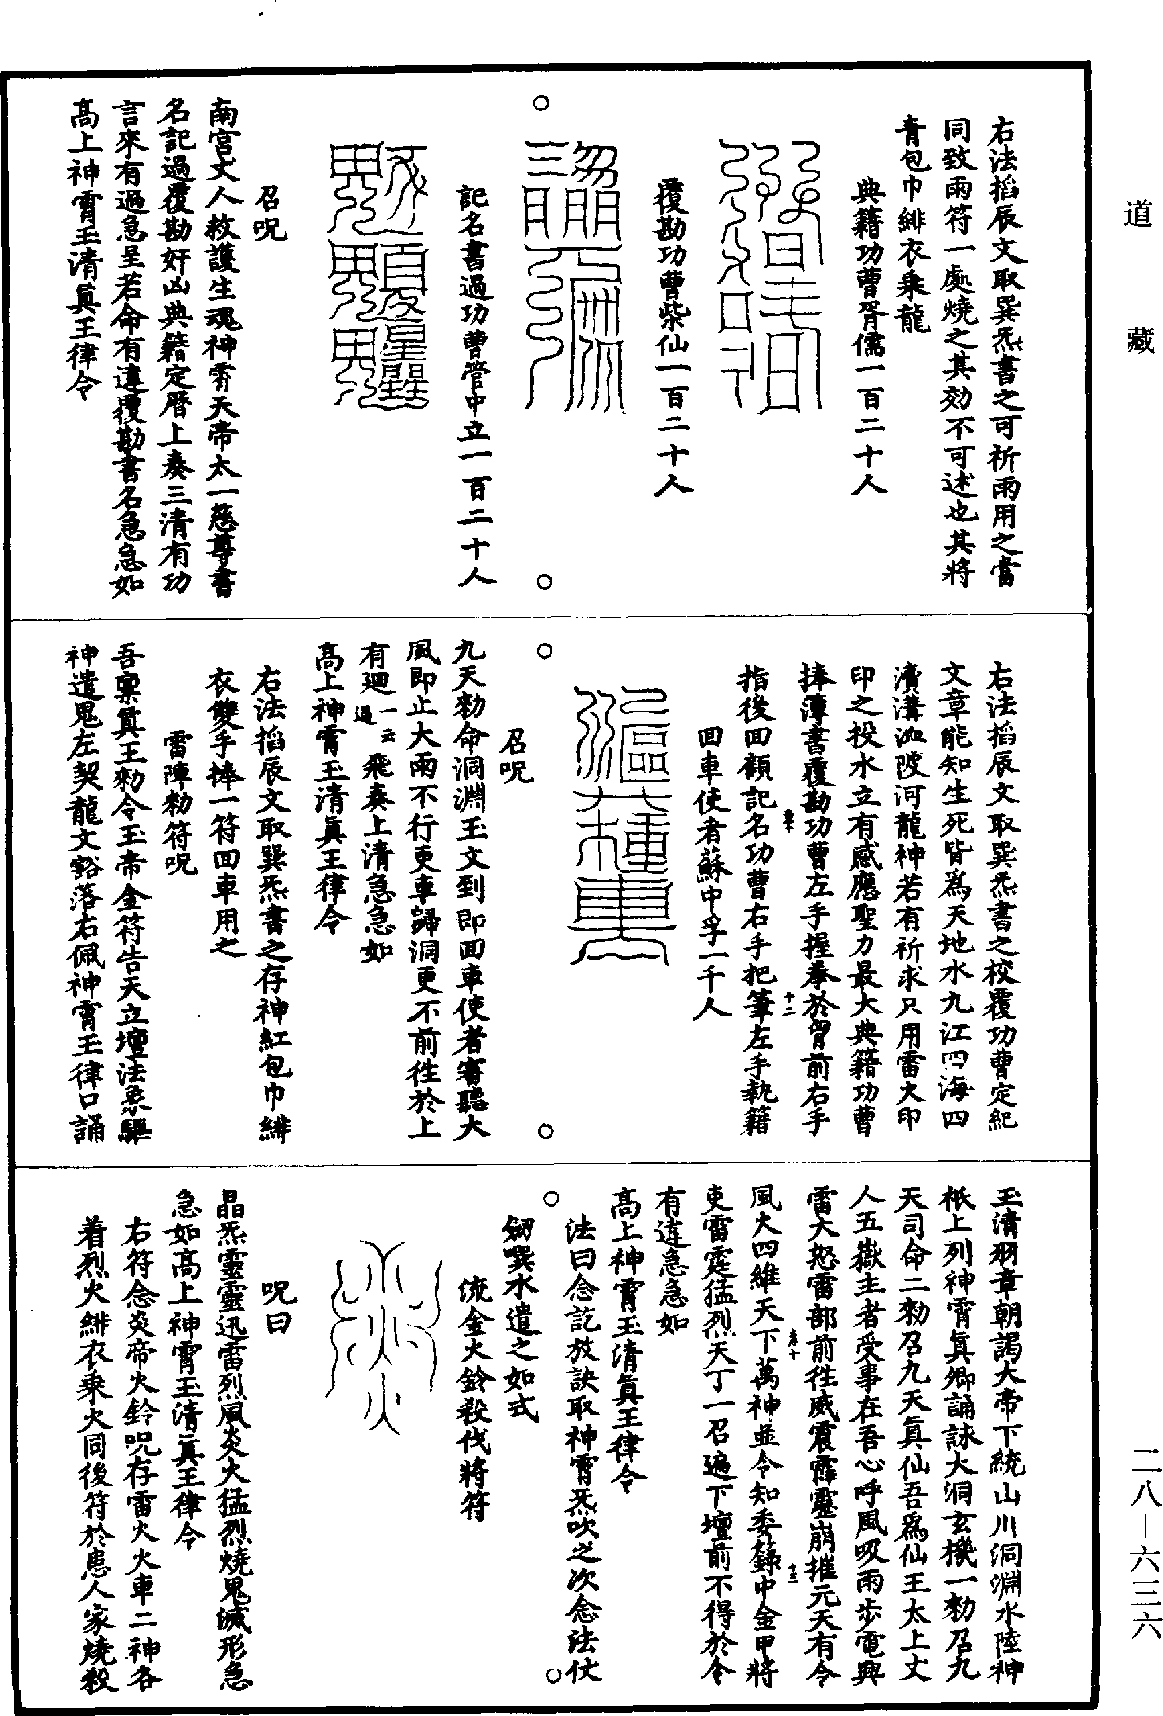 道藏
右法掐辰文取巽炁書之可祈雨用之當
同致雨符一處燒之其効不可述也其將
青包巾緋衣乘龍
典籍功曹胥儒一百二十人
覆勘功曹柴仙一百二十人
記名書過功曹管中立一百二十人
召呪
南宮丈人救護生魂神霄天帝太一慈尊書
名記過覆勘奸凶典籍定曆上奏三清有功
言來有過急呈若命有違覆勘書名急急如
高上神霄玉清眞王律令
右法掐辰文取巽炁書之校覆功曹定紀
文章能知生死皆爲天地水九江四海四
瀆溝洫陂河龍神若有祈求只用雷火印
印之投水立有感應聖力最大典籍功曹
捧薄書覆勘功曹左手握拳於胷前右手
指後回顧記名功曹右手把筆左手執籍
回車使者蘇中孚一千人
召呪
九天勑命洞淵玉文到即回車使者審聽大
風即止大雨不行更車歸洞更不前徃於上
有迴一云過飛奏上清急急如
高上神霄玉清眞王律令
右法掐辰文取巽炁書之存神紅包巾緋
衣雙手捧一符回車用之
雷陣勑符呪
吾稟眞王勑令玉帝金符告天立壇法係驅
神遣鬼左契龍文豁落右佩神霄玉律口誦
玉清羽章朝謁大帝下統山川洞淵水陸神
祇上列神霄眞卿誦詠大洞玄機一勑召九
天司命二勑召九天眞仙吾爲仙王太上丈
人五嶽主者受事在吾心呼風吸雨步電興
雷大怒雷部前徃威震霹靂崩摧元天有令
風火四維天下萬神並令知委籙中金甲將
吏雷霆猛烈天丁一召遍下壇前不得於令
有違急急如
高上神霄玉清眞王律令
法曰念訖放訣取神霄炁吹之次念法仗
劒噀水遣之如式
流金火鈴殺伐將符
呪曰
晶炁靈靈迅雷烈風炎火猛烈燒鬼滅形急
急如高上神霄玉清眞王律令
右符念炎帝火鈴呪存雷火火車二神各
着烈火緋衣乘火同後符於患人家燒殺
二八—六三六